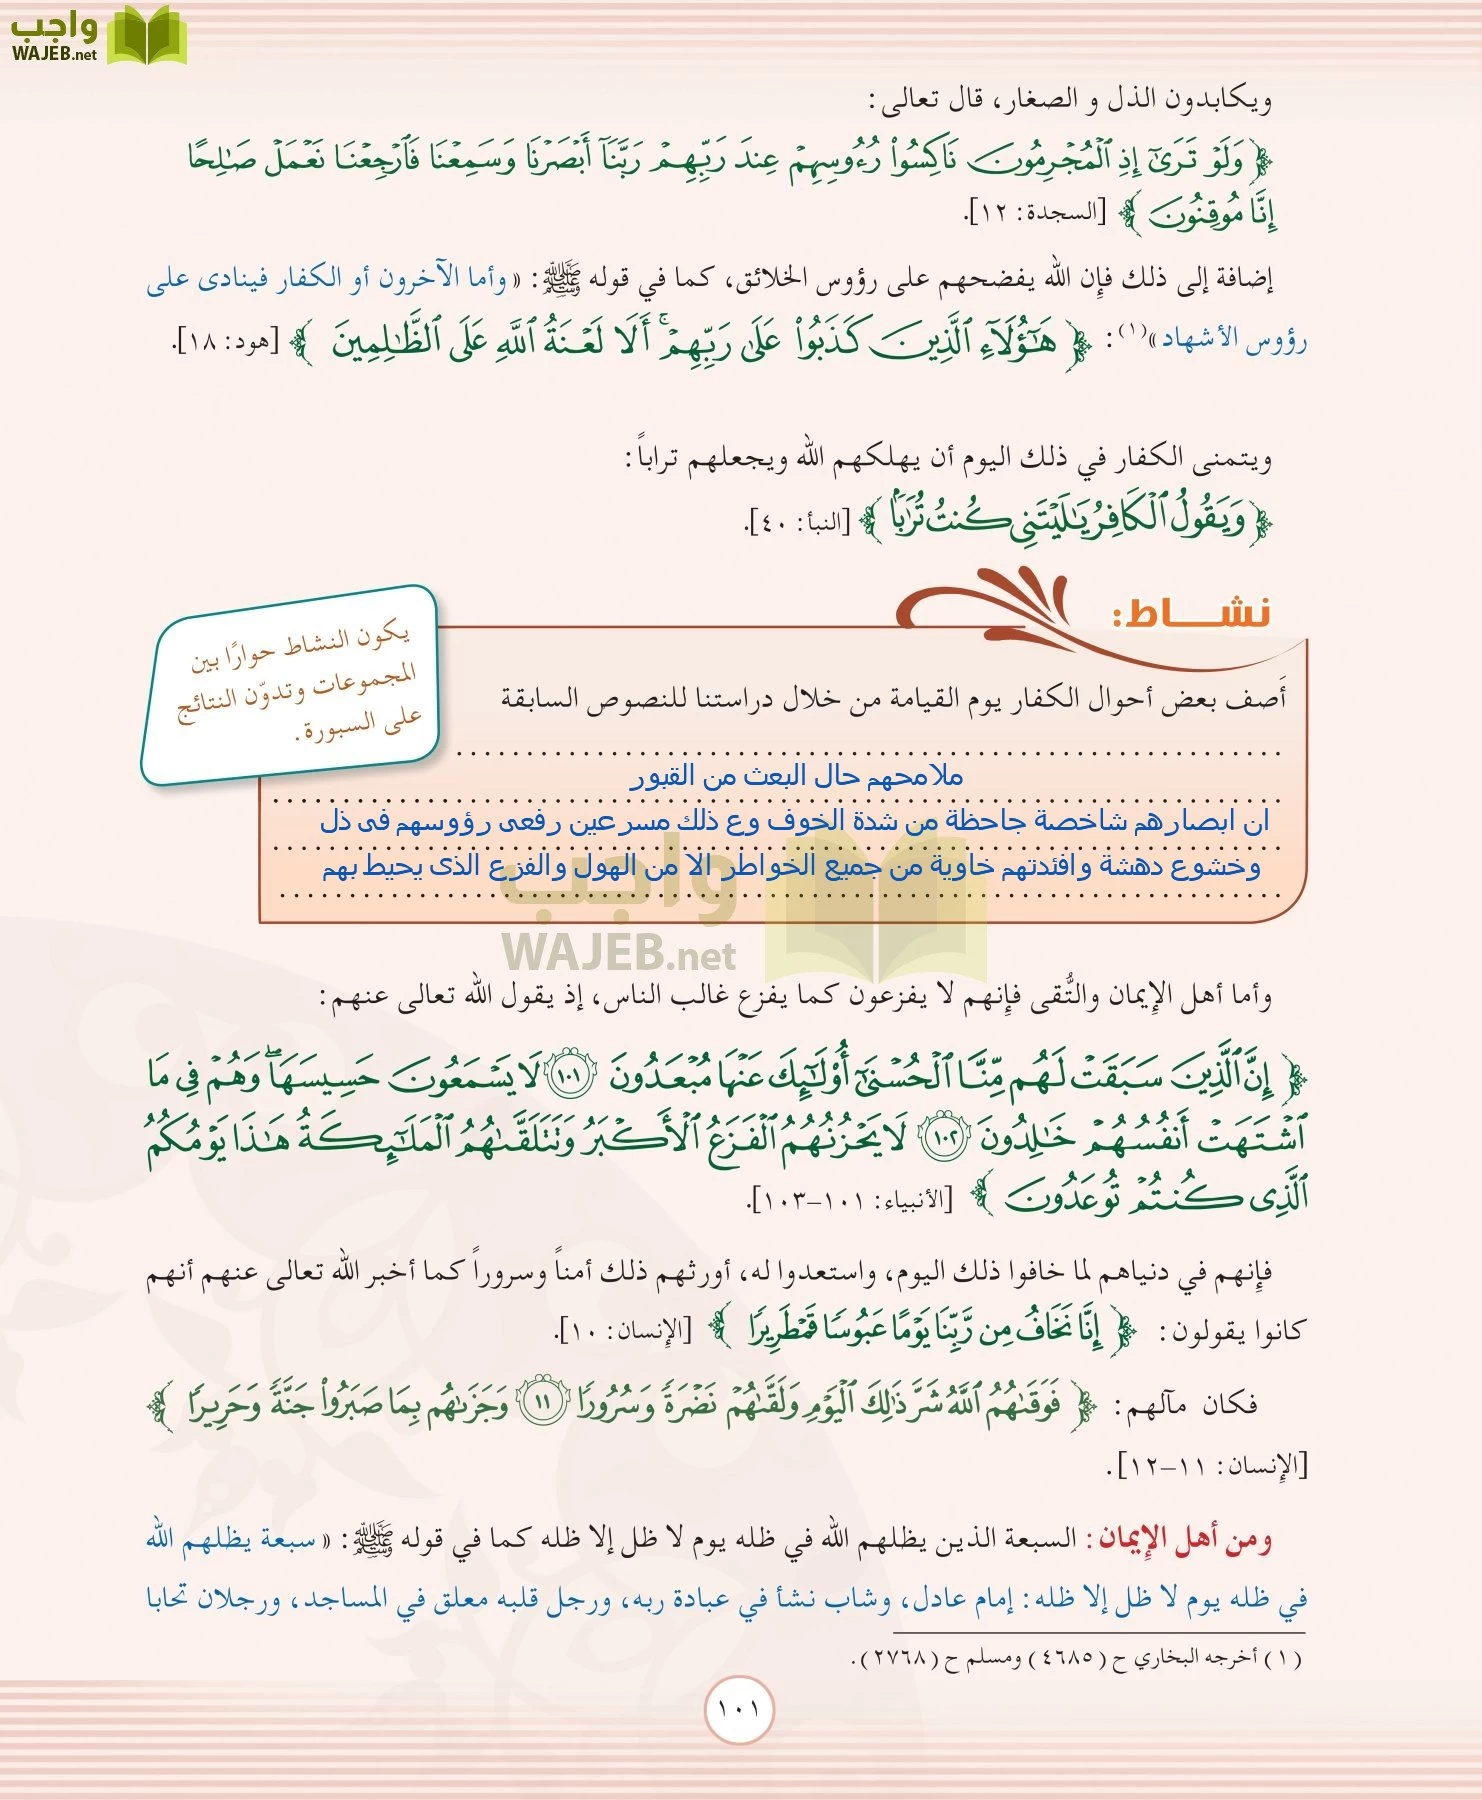 واجب
WAJEB.net
ويكابدون الذل و الصغار، قال تعالى:
﴿ وَلَوۡ تَرَىٰٓ إِذِ ٱلۡمُجۡرِمُونَ نَاكِسُواْ رُءُوسِهِمۡ عِندَ رَبِّهِمۡ رَبَّنَآ أَبۡصَرۡنَا وَسَمِعۡنَا فَٱرۡجِعۡنَا نَعۡمَلۡ صَٰلِحًا
إِنَّا مُوقِنُونَ ﴾ [السجدة: ١٢].
إضافة إلى ذلك فإن الله يفضحهم على رؤوس الخلائق، كما في قوله ﷺ: « وأما الآخرون أو الكفار فينادى على
رؤوس الأشهاد »(١): ﴿ هَٰٓؤُلَآءِ ٱلَّذِينَ كَذَبُواْ عَلَىٰ رَبِّهِمۡۚ أَلَا لَعۡنَةُ ٱللَّهِ عَلَى ٱلظَّٰلِمِينَ ﴾ [هود: ١٨].
ويتمنى الكفار في ذلك اليوم أن يهلكهم الله ويجعلهم تراباً:
﴿ وَيَقُولُ ٱلۡكَافِرُ يَٰلَيۡتَنِي كُنتُ تُرَٰبَۢا ﴾ [النبأ: ٤٠].
نشـــاط:
يكون النشاط حوارًا بين
المجموعات وتدوّن النتائج
على السبورة.
أَصف بعض أحوال الكفار يوم القيامة من خلال دراستنا للنصوص السابقة
ملامحهم حال البعث من القبور
ان ابصارهم شاخصة جاحظة من شدة الخوف وع ذلك مسرعين رفعى رؤوسهم فى ذل
وخشوع دهشة وافئدتهم خاوية من جميع الخواطر الا من الهول والفزع الذى يحيط بهم
واجب
WAJEB.net
وأما أهل الإيمان والتُّقى فإنهم لا يفزعون كما يفزع غالب الناس، إذ يقول الله تعالى عنهم:
﴿ إِنَّ ٱلَّذِينَ سَبَقَتۡ لَهُم مِّنَّا ٱلۡحُسۡنَىٰٓ أُوْلَٰٓئِكَ عَنۡهَا مُبۡعَدُونَ ١٠١ لَا يَسۡمَعُونَ حَسِيسَهَاۖ وَهُمۡ فِي مَا
ٱشۡتَهَتۡ أَنفُسُهُمۡ خَٰلِدُونَ ١٠٢ لَا يَحۡزُنُهُمُ ٱلۡفَزَعُ ٱلۡأَكۡبَرُ وَتَتَلَقَّىٰهُمُ ٱلۡمَلَٰٓئِكَةُ هَٰذَا يَوۡمُكُمُ
ٱلَّذِي كُنتُمۡ تُوعَدُونَ ﴾ [الأنبياء: ١٠١–١٠٣].
فإنهم في دنياهم لما خافوا ذلك اليوم، واستعدوا له، أورثهم ذلك أمناً وسروراً كما أخبر الله تعالى عنهم أنهم
كانوا يقولون: ﴿ إِنَّا نَخَافُ مِن رَّبِّنَا يَوۡمًا عَبُوسٗا قَمۡطَرِيرٗا ﴾ [الإنسان: ١٠].
فكان مآلهم: ﴿ فَوَقَىٰهُمُ ٱللَّهُ شَرَّ ذَٰلِكَ ٱلۡيَوۡمِ وَلَقَّىٰهُمۡ نَضۡرَةٗ وَسُرُورٗا ١١ وَجَزَىٰهُم بِمَا صَبَرُواْ جَنَّةٗ وَحَرِيرٗا ﴾
[الإنسان: ١١–١٢].
ومن أهل الإيمان: السبعة الذين يظلهم الله في ظله يوم لا ظل إلا ظله كما في قوله ﷺ: « سبعة يظلهم الله
في ظله يوم لا ظل إلا ظله: إمام عادل، وشاب نشأ في عبادة ربه، ورجل قلبه معلق في المساجد، ورجلان تحابا
(١) أخرجه البخاري ح (٤٦٨٥) ومسلم ح (٢٧٦٨).
١٠١